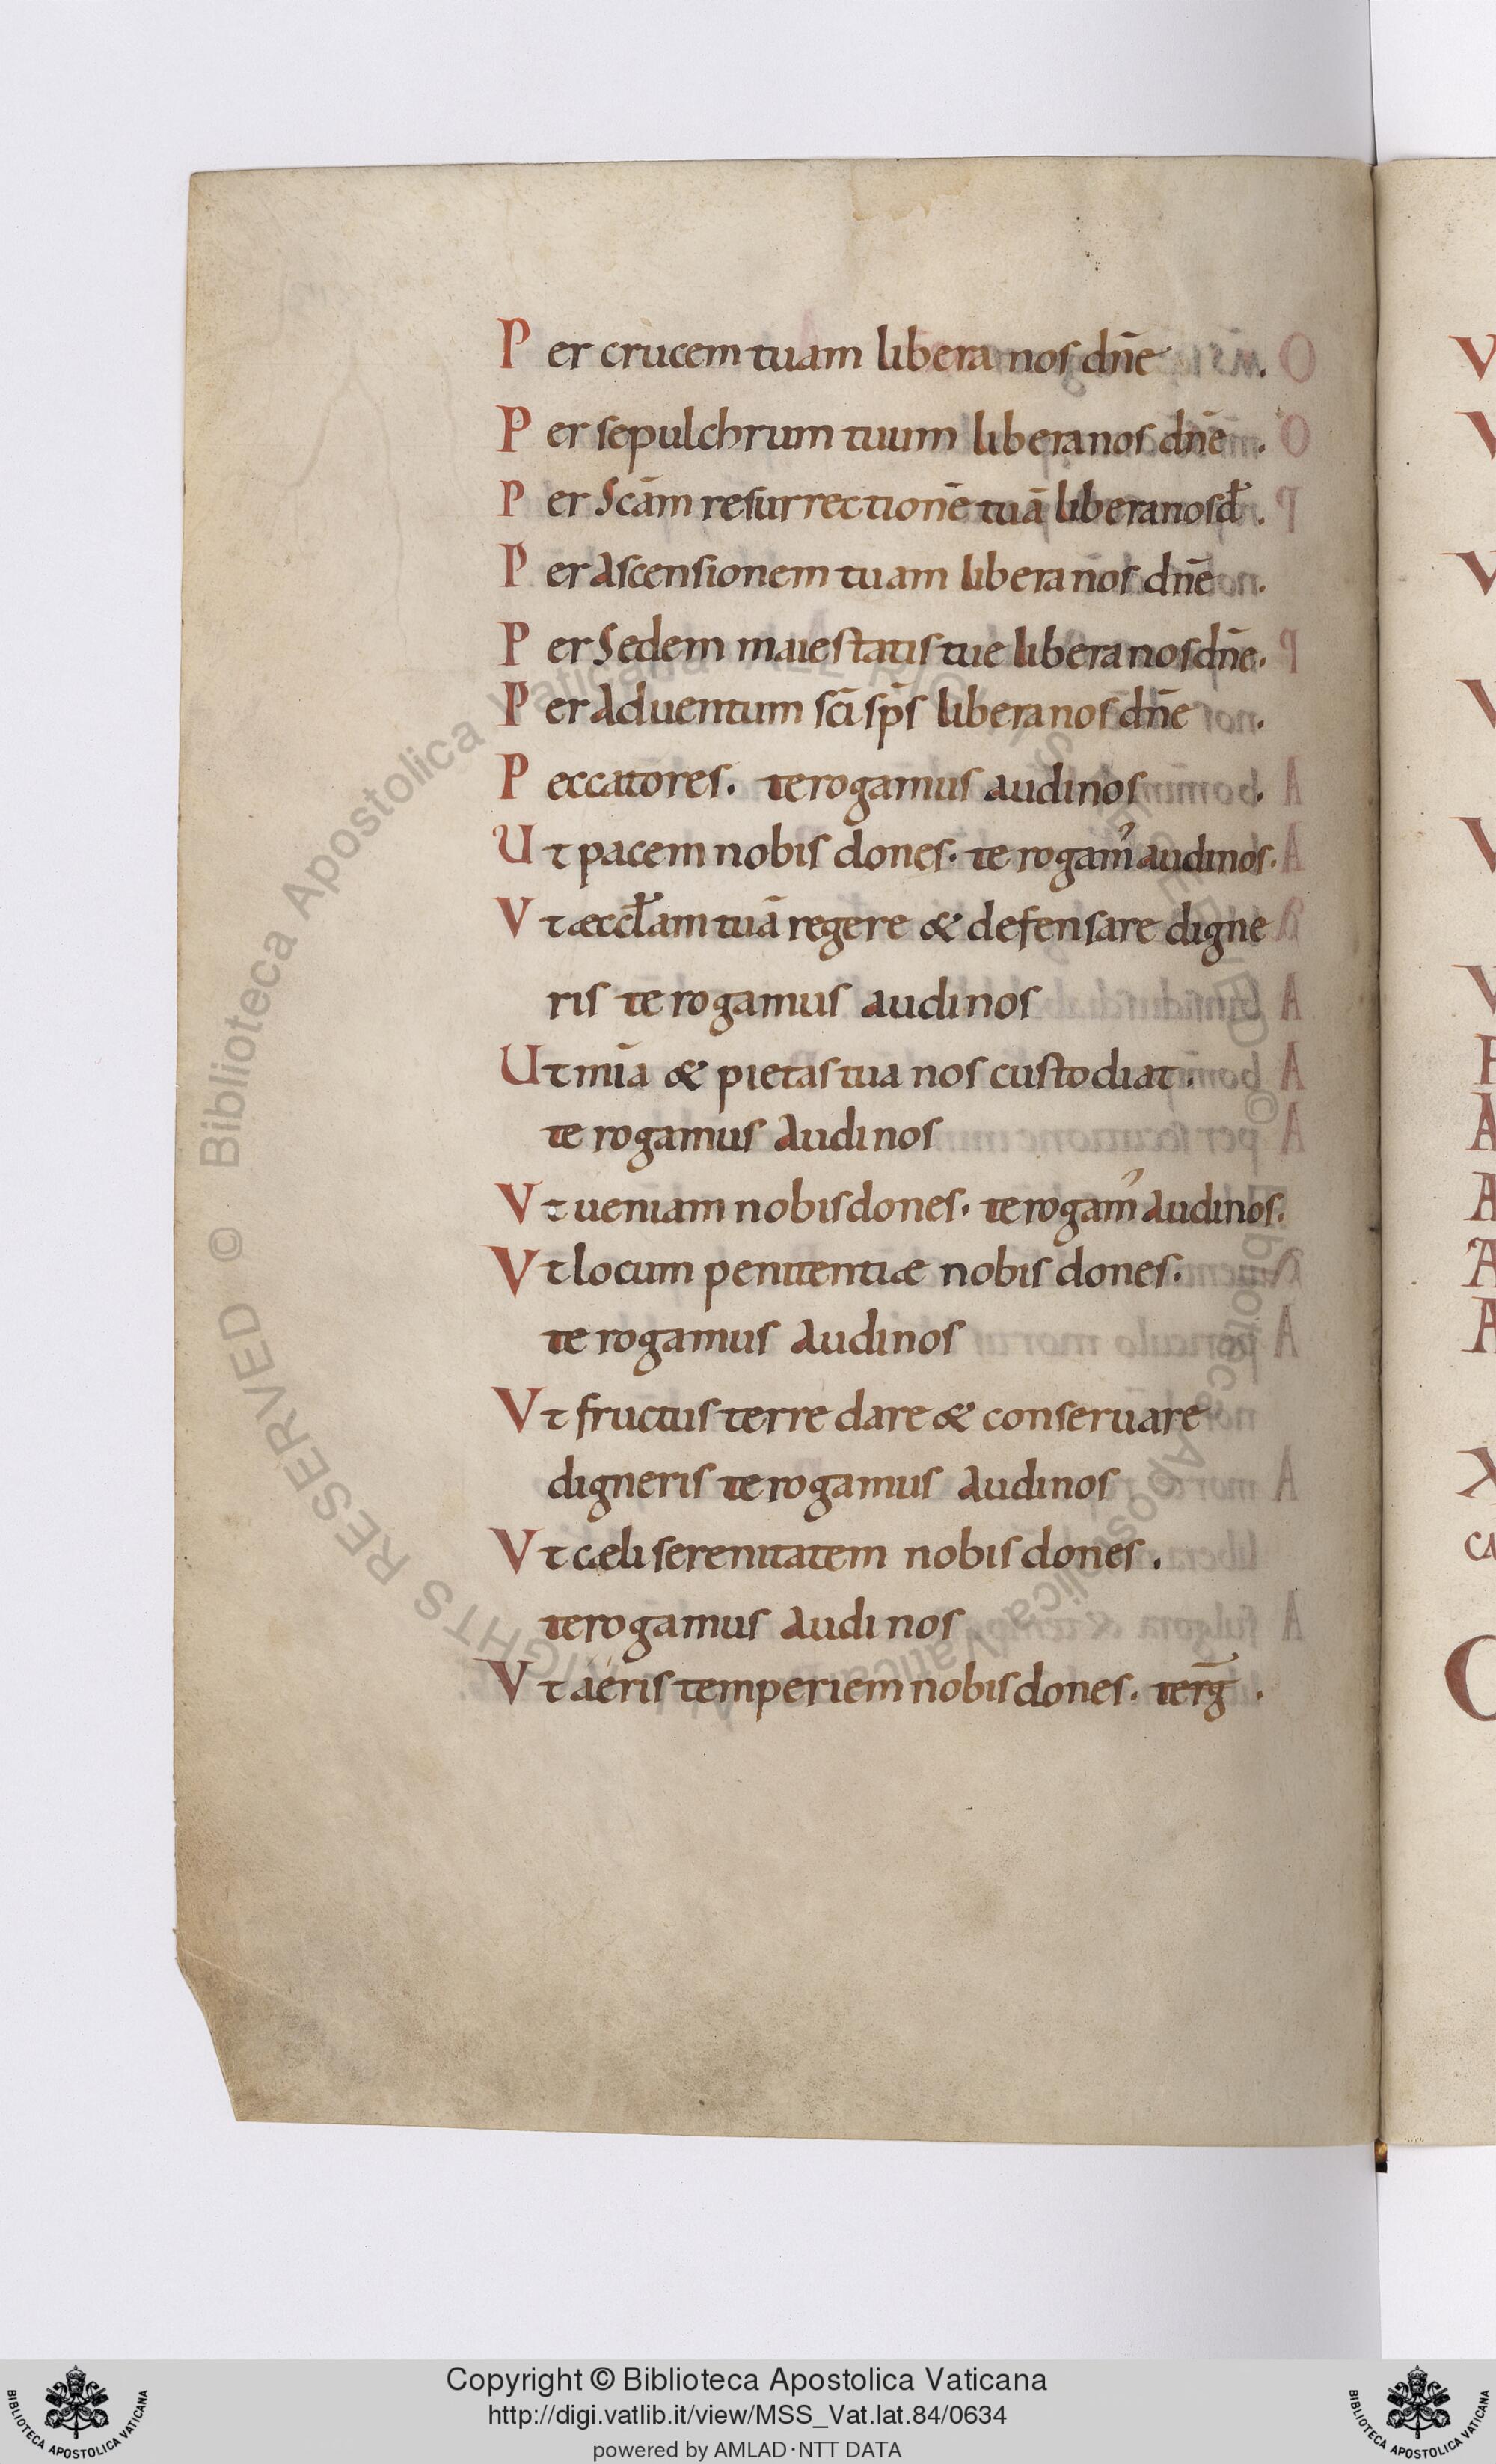 Per crucem tuam libera nos dn̄e .
Per sepulchrum tuum libera nos dn̄e .
Per Scām resurrectionē tuā libera nos dꝉ .
Per Ascensionem tuam libera nos dn̄e .
Per Sedem maiestatis tue libera nos dn̄e .
Per Aduentum sc̄i sp̄s libera nos dn̄e .
Peccatores . te rogamus audi nos .
Ut pacem nobis dones . te rogam᾽ audi nos .
Vt æccꝉam tuā regere & defensare digne
ris te rogamus audi nos
Ut mīa & pietas tua nos custodiat .
te rogamus Audi nos
Vt ueniam nobis dones . te rogam᾽ Audi nos .
Vt locum penitentiæ nobis dones .
te rogamus Audi nos
Vt fructus terre dare & conseruare
digneris te rogamus Audi nos
Vt cęli serenitatem nobis dones .
te rogamus Audi nos
Vt aëris temperiem nobis dones . te rḡ .
© Biblioteca Apostolica Vaticana ALL RIGHTS RESERVED © Biblioteca Apostolica Vaticana ALL RIGHTS RESERVED
Copyright © Biblioteca Apostolica Vaticana
http://digi.vatlib.it/view/MSS_Vat.lat.84/0634
powered by AMLAD·NTT DATA
BIBLIOTECA APOSTOLICA VATICANA
BIBLIOTECA APOSTOLICA VATICANA